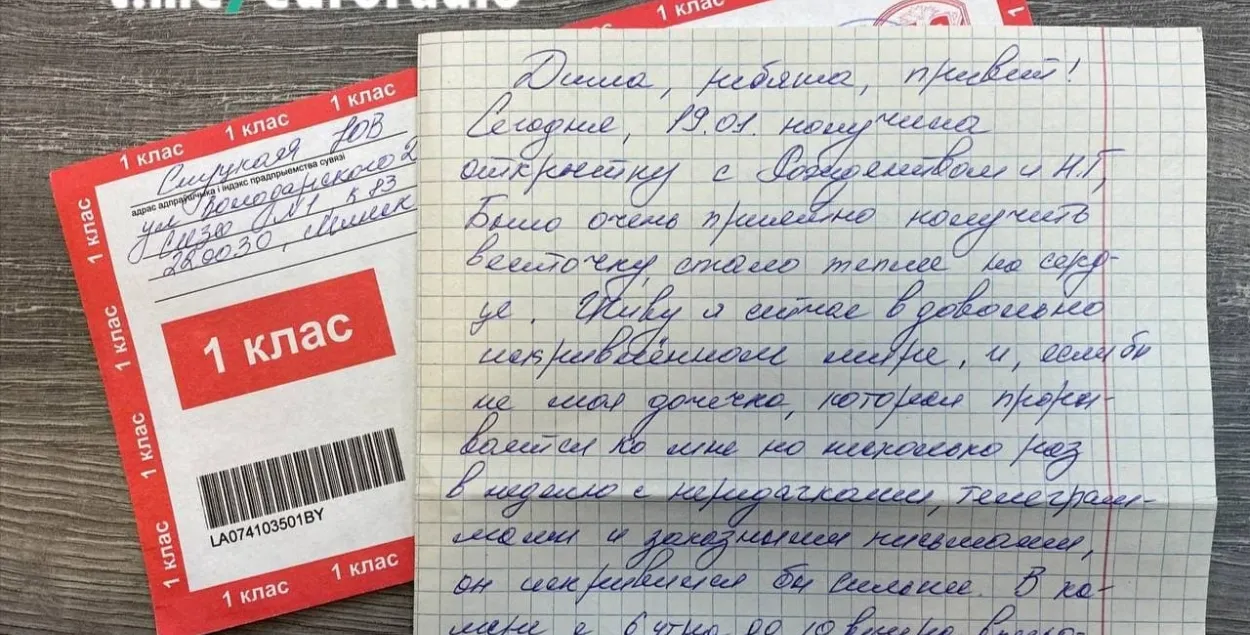 t.me/euroradio
1 клас
1 клас
1 клас
1 клас
1 клас
Слуцкая ЮВ
адрас адпраўшчыка і індэкс прадпрыемства сувязі
ул Володарского 2
СИЗО №1 к 83
220030, Минск
1 клас
1 клас
1 клас
1 клас
1 клас
LA074103501BY
1 клас
1 клас
Дима, ребята, привет!
Сегодня, 19.01. получила
открытку с Рождеством и Н.Г,
Было очень приятно получить
весточку, стало теплее на серд-
це. Живу я сейчас в довольно
искривлённом мире, и, если бы
не моя дочечка, которая проры-
вается ко мне по несколько раз
в неделю с передачками, телеграм-
мами и заказными письмами,
он искривился бы сильнее. В ка-
мере с 6 утра до 10 вечера